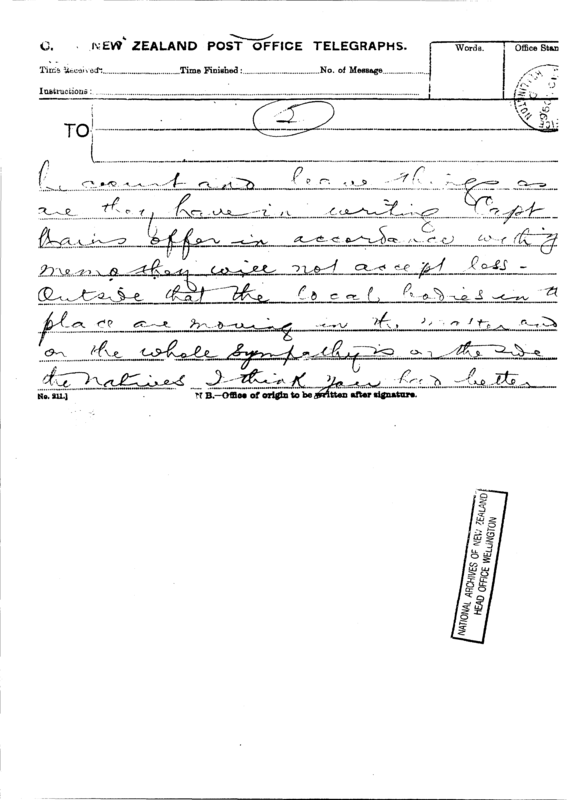 C. NEW ZEALAND POST OFFICE TELEGRAPHS.
Words.
Office Stan
Time Received: Time Finished: No. of Message
Instructions:
5
TO
account and leave things as
are they have in writing Capt
offer in accordance with
memo they will not accept less -
Outside that the local bodies in
place are moving in the matter and
on the whole sympathy is on the side
the Natives I think you had better
No. 211.] N B.—Office of origin to be written after signature.
NATIONAL ARCHIVES OF NEW ZEALAND
HEAD OFFICE WELLINGTON